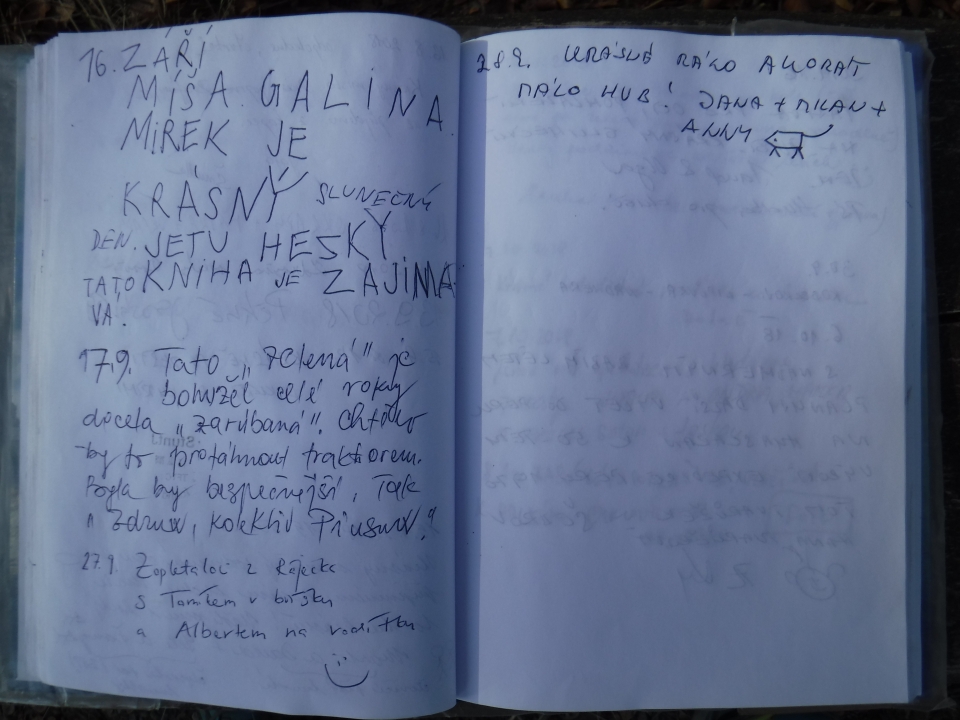 16. ZÁŘÍ
MÍŠA. GALINA.
MIREK JE
KRÁSNÝ SLUNEČNÝ
DEN. JETU HESKÝ
TATO KNIHA JE ZAJÍMA
VÁ.
17.9. Tato „zelená" je
bohužel celé roky
docela „zarubaná". Chtělo
by to protáhnout traktorem.
Byla by bezpečnější, Tak
„Zdravw, kolektiv
27.9. Zapletalovi z Ráječka
s Tomílem v bříšku
a Albertem na vodítku
28.9. KRÁSNÉ RÁNO AKORÁT
MÁLO HUB! JANA + MILAN +
ANNY